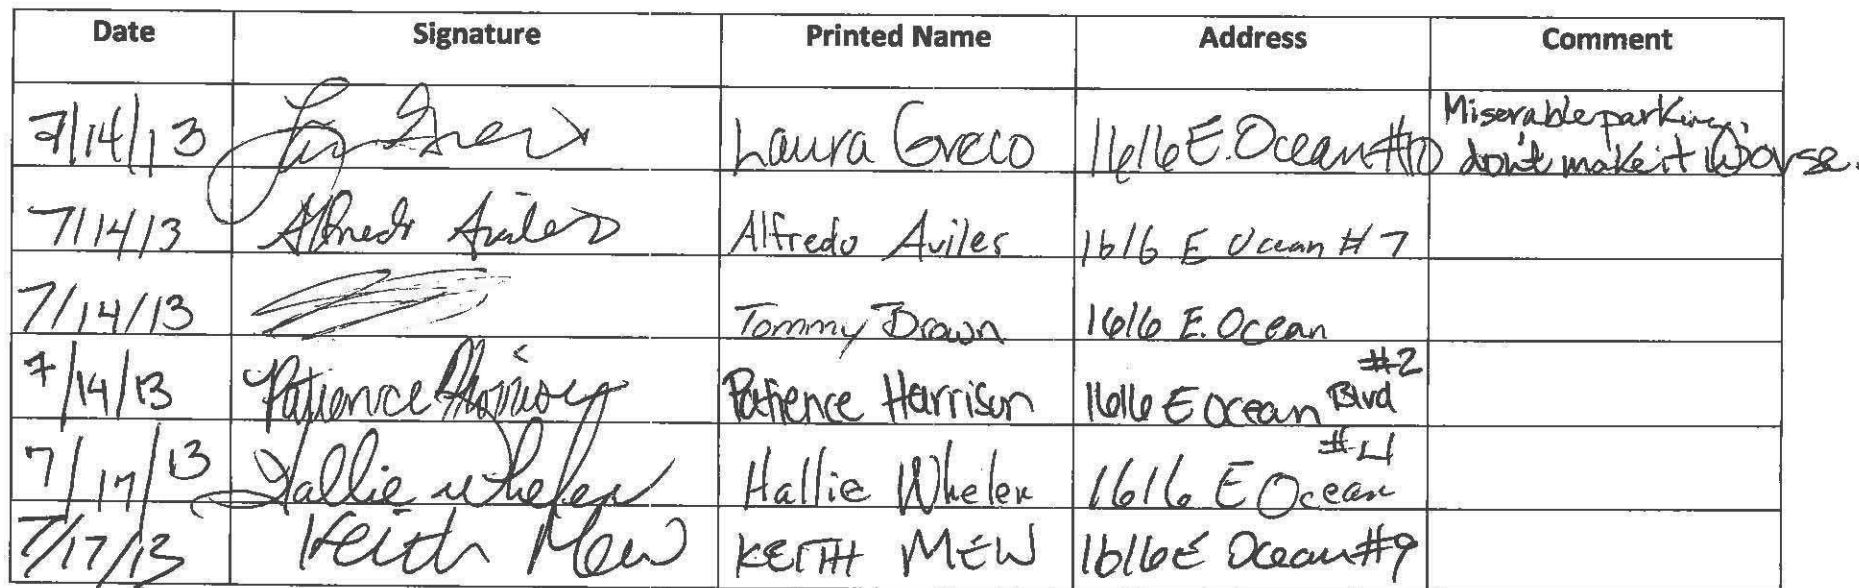 Date Signature Printed Name Address Comment
7/14/13 Laura Greco 1616 E. Ocean #10 Miserable parking,
don't make it worse.
7/14/13 Alfredo Aviles Alfredo Aviles 1616 E Ocean #7
7/14/13 Tommy Brown 1616 E. Ocean
#2
7/14/13 Patience Harrison Patience Harrison 1616 E Ocean Blvd
#4
7/17/13 Hallie Whelen Hallie Whelen 1616 E Ocean
7/17/13 Keith Mew KEITH MEW 1616 E Ocean #9